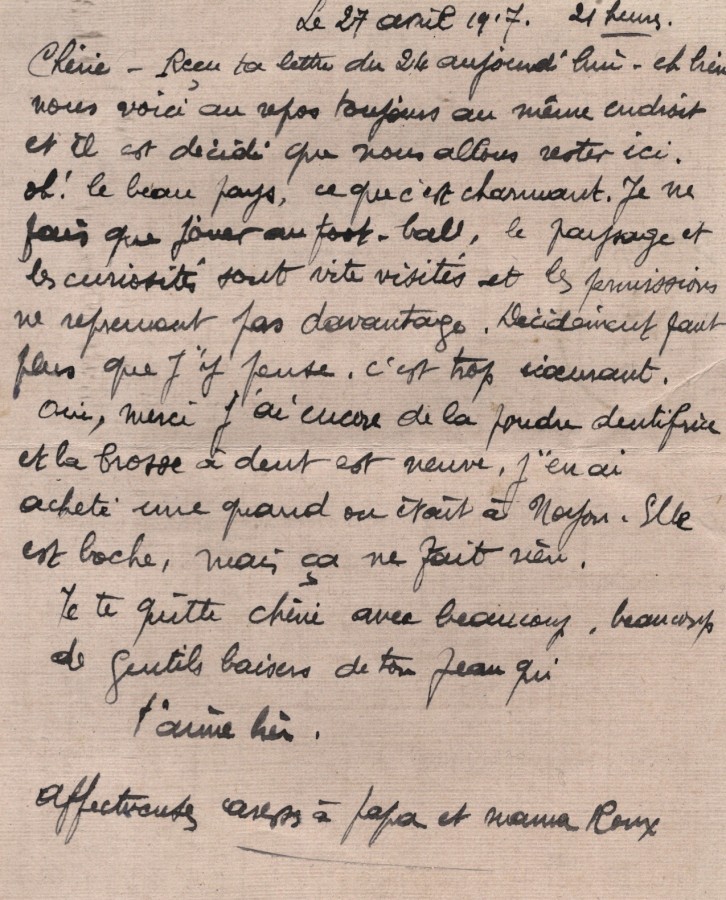 Le 27 avril 1917. 21 heures.
Chérie - Reçu ta lettre du 24 aujourd'hui - eh bien
nous voici au repos toujours au même endroit
et il est décidé que nous allons rester ici.
oh! le beau pays, ce que c'est charmant. Je ne
fais que jouer au foot-ball, le paysage et
les curiosités sont vite visités et les permissions
ne reprennent pas davantage. Décidément faut
plus que j'y pense. c'est trop écœurant.
Oui, merci j'ai encore de la poudre dentifrice
et la brosse à dent est neuve, j'en ai
acheté une quand on était à Noyon. Elle
est boche, mais ça ne fait rien.
Je te quitte chérie avec beaucoup, beaucoup
de gentils baisers de ton Jean qui
t'aime bien.
Affectueuses caresses à papa et maman Roux